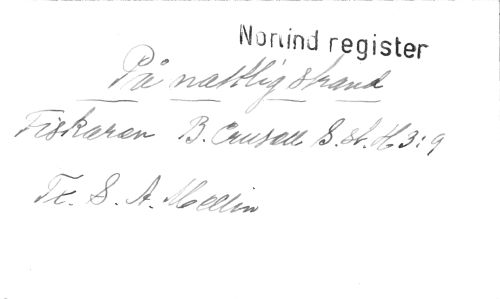 Norlind register
På nattlig strand
Fiskaren B. Crusell S. st. H 3:9
Tr. S. A. Mellin